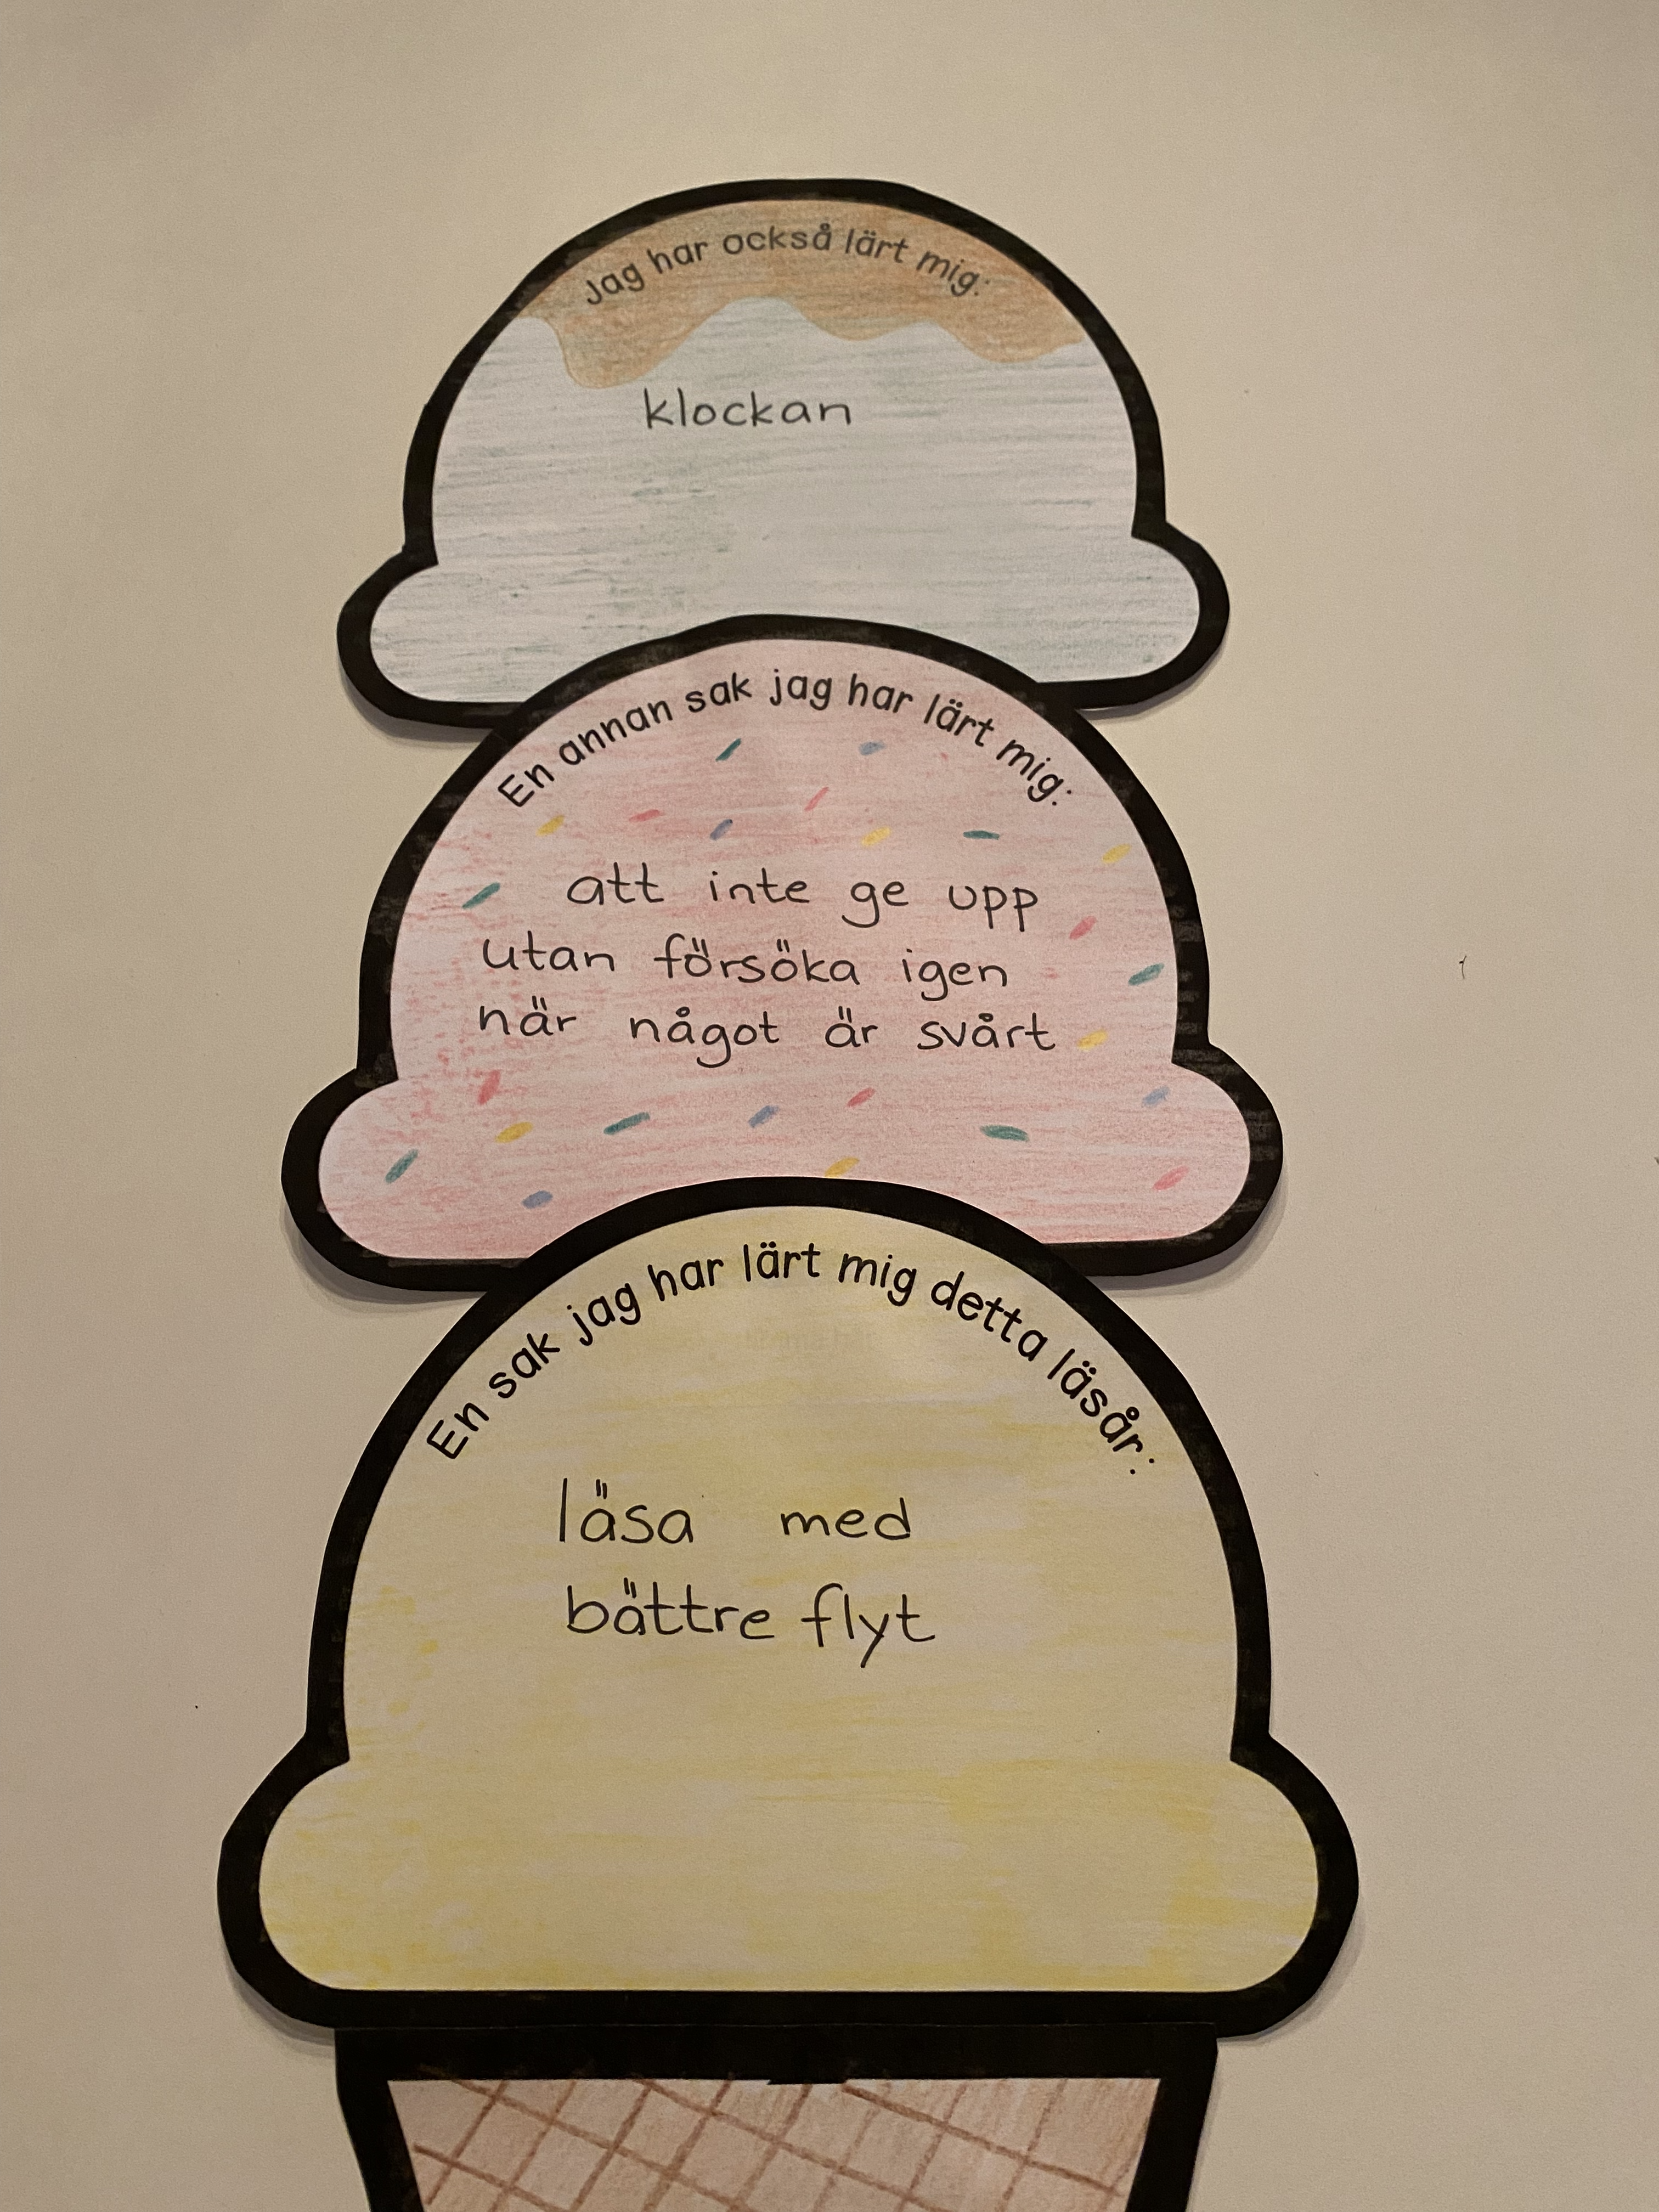 Jag har också lärt mig:
klockan
En annan sak jag har lärt mig:
att inte ge upp
utan försöka igen
när något är svårt
En sak jag har lärt mig detta läsår:
läsa med
bättre flyt